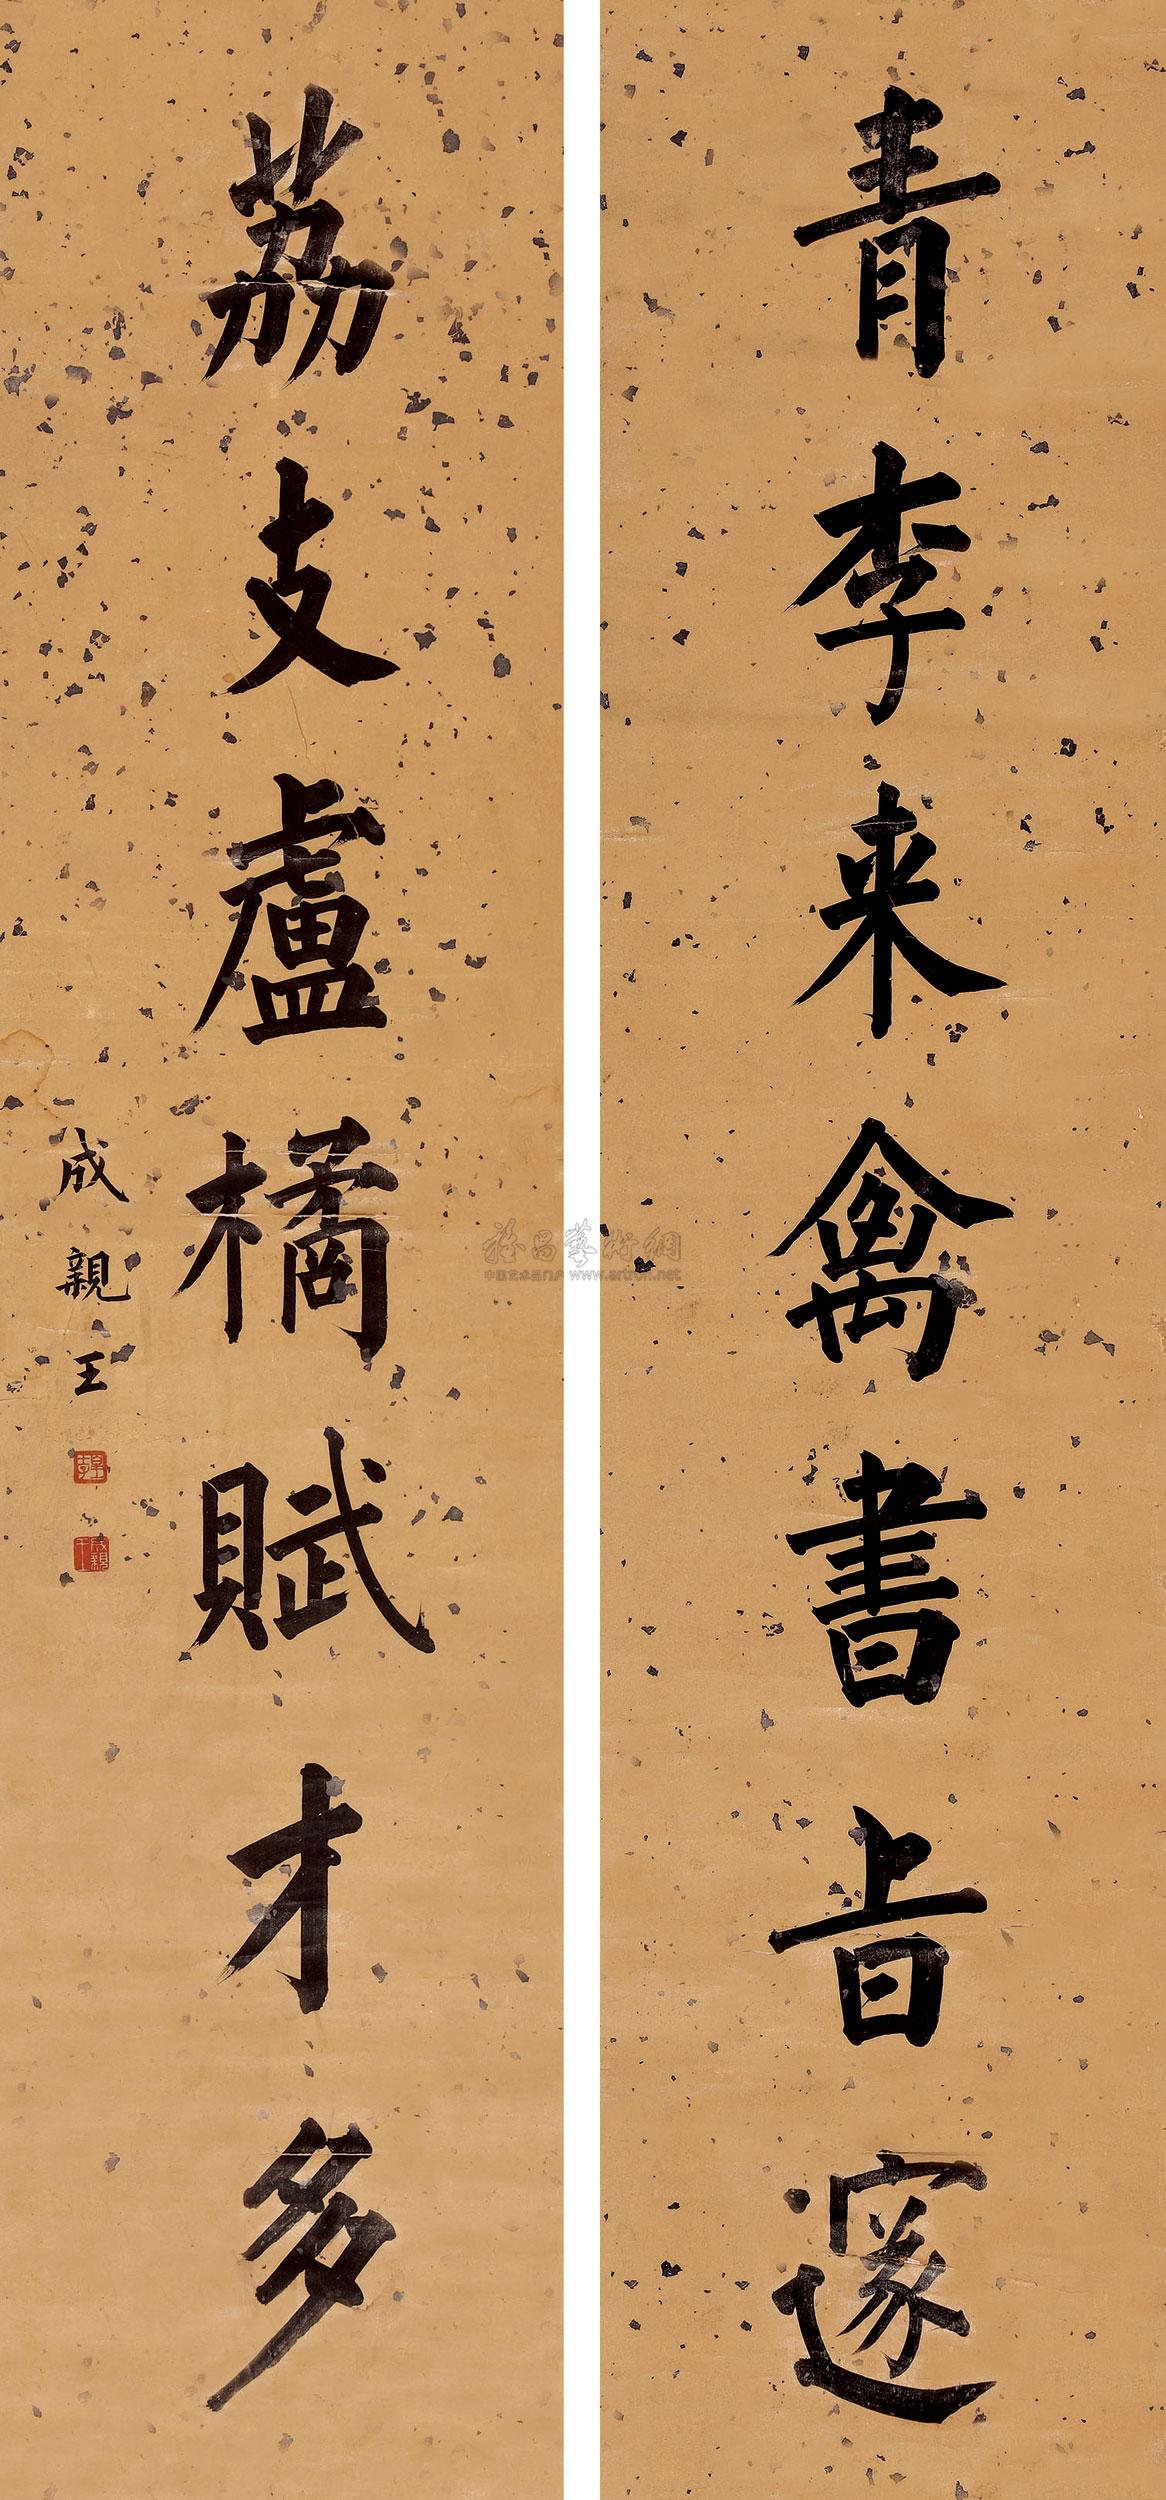 青李来禽書旨邃
荔支盧橘賦才多
成親王
成親王
www.artron.net